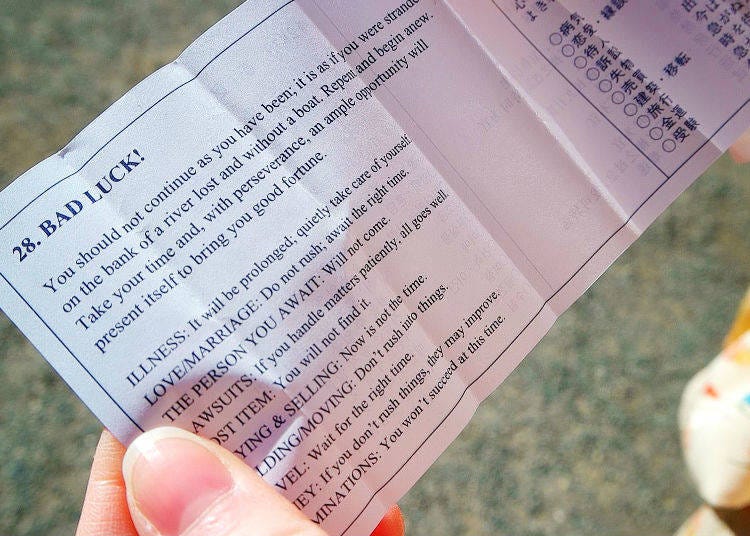 28. BAD LUCK!
You should not continue as you have been; it is as if you were strande
on the bank of a river lost and without a boat. Repent and begin anew.
Take your time and, with perseverance, an ample opportunity will
present itself to bring you good fortune.
ILLNESS: It will be prolonged; quietly take care of yourself.
LOVE/MARRIAGE: Do not rush; await the right time.
THE PERSON YOU AWAIT: Will not come.
AWSUITS: If you handle matters patiently, all goes well.
OST ITEM: You will not find it.
YING & SELLING: Now is not the time.
LDING/MOVING: Don't rush into things.
VEL: Wait for the right time.
EY: If you don't rush things, they may improve.
MINATIONS: You won't succeed at this time.
○病気
○恋愛・縁談
○待人
○訴訟
○失物
○売買
○建築・移転
○旅行
○金運
○受験